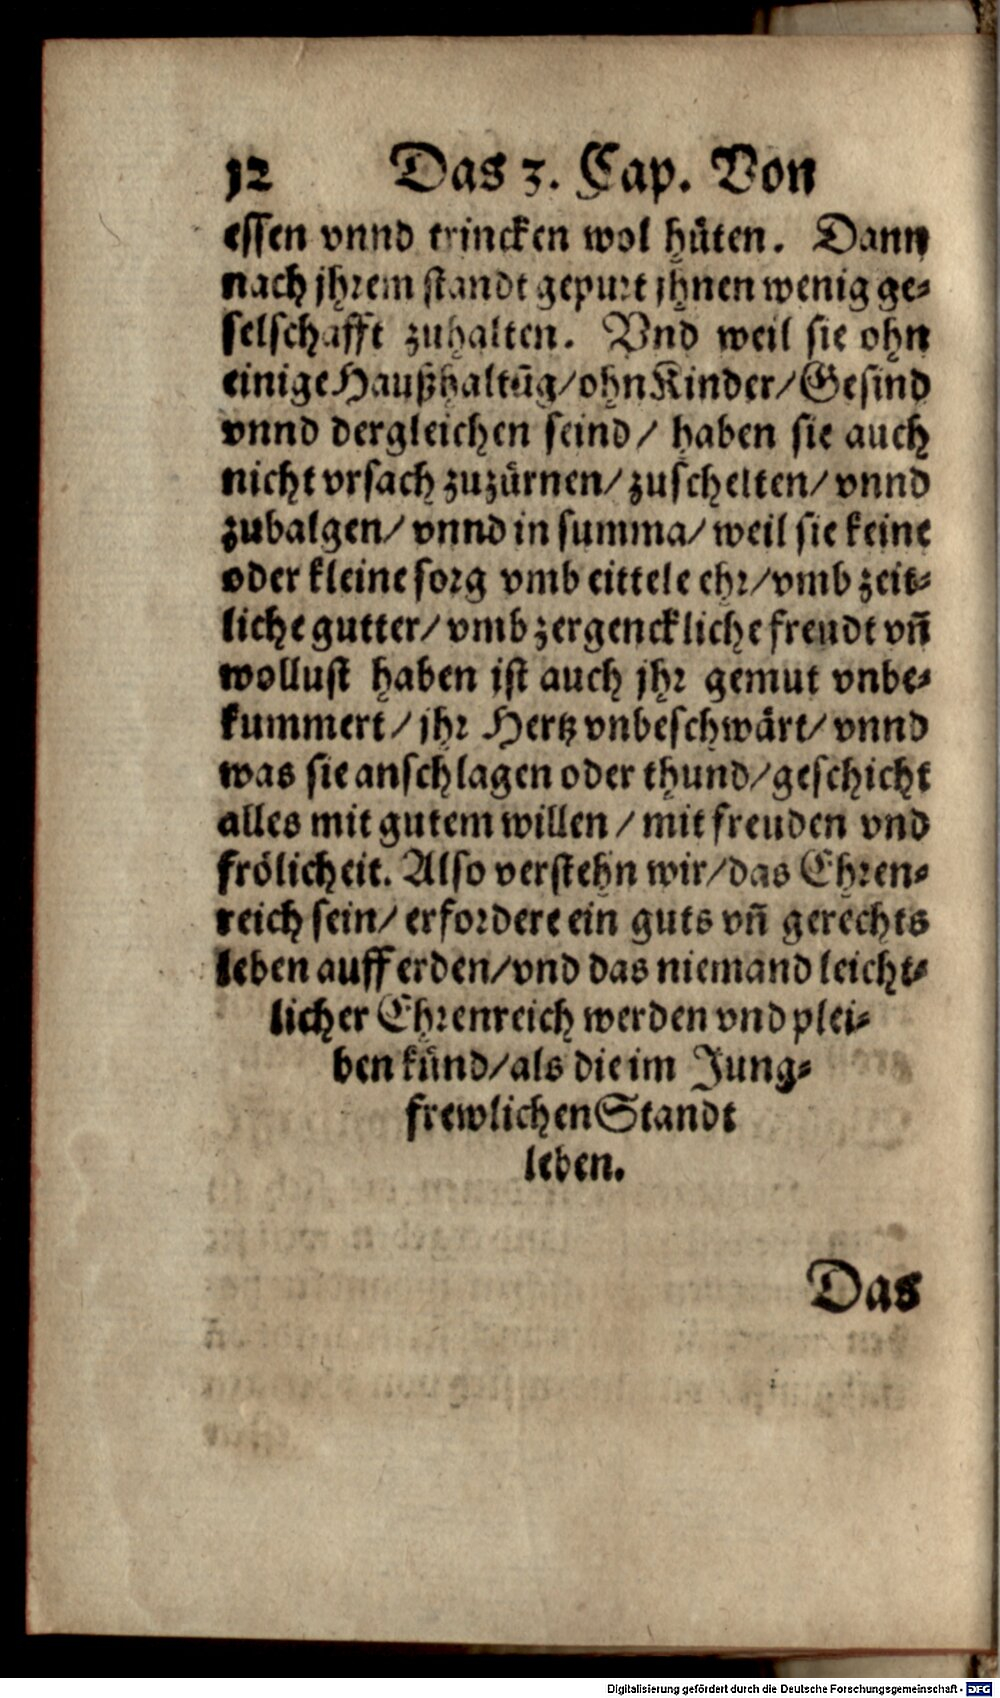 12 Das 3. Cap. Von
essen vnnd trincken wol hüten. Dann
nach jhrem standt gepurt jhnen wenig ge-
selschafft zuhalten. Vnd weil sie ohn
einige Haußhaltūg/ohn Kinder/Gesind
vnnd dergleichen seind/ haben sie auch
nicht vrsach zuzürnen/zuschelten/vnnd
zubalgen/vnnd in summa/weil sie keine
oder kleine sorg vmb eittele ehr/vmb zeit-
liche gutter/vmb zergenckliche freudt vñ
wollust haben ist auch jhr gemut vnbe-
kummert/jhr Hertz vnbeschwärt/vnnd
was sie anschlagen oder thund/geschicht
alles mit gutem willen/mit freuden vnd
frölicheit. Also verstehn wir/das Ehren-
reich sein/erfordere ein guts vñ gerechts
leben auff erden/vnd das niemand leicht-
licher Ehrenreich werden vnd plei-
ben künd/als die im Jung-
frewlichen Standt
leben.
Das
Digitalisierung gefördert durch die Deutsche Forschungsgemeinschaft - DFG